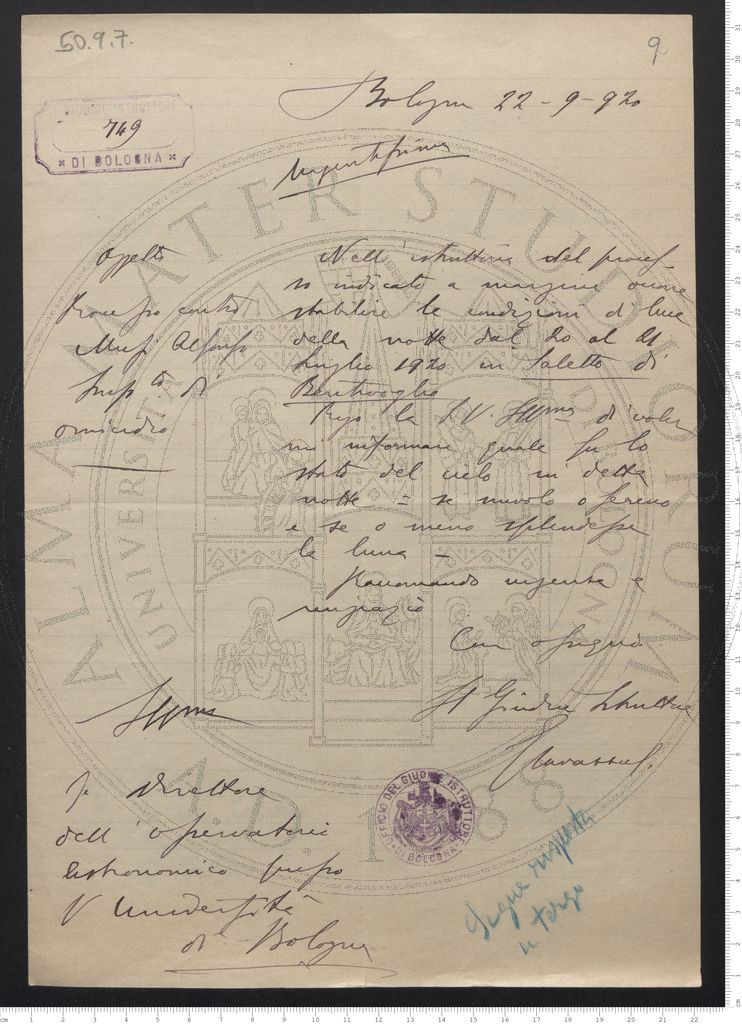 50.9.7.
9
UFFICIO D'ISTRUZIONE
749
DI BOLOGNA
Bologna 22-9-920
Urgentissima
Oggetto
Processo contro
Alfonso
Imp.to di
omicidio
Nell'istruttoria del proces-
so indicato a margine occorre
stabilire le condizioni di luce
della notte dal 20 al 21
Luglio 1920 in Saletto di
Bentivoglio
Prego la S.V. Ill.ma di voler
mi informare quale fu lo
stato del cielo in detta
notte = se nuvolo o sereno
e se o meno splendesse
la luna -
Raccomando urgenza e
ringrazio
Con ossequio
Il Giudice Istruttore
Ill.mo
Sr Direttore
dell'Osservatorio
Astronomico presso
l'Università
di Bologna
UFFICIO DEL GIUDICE ISTRUTTORE
DI BOLOGNA
Segue risposta
a tergo
ALMA MATER STUDIORUM
UNIVERSITÀ DI BOLOGNA
A.D. 1088